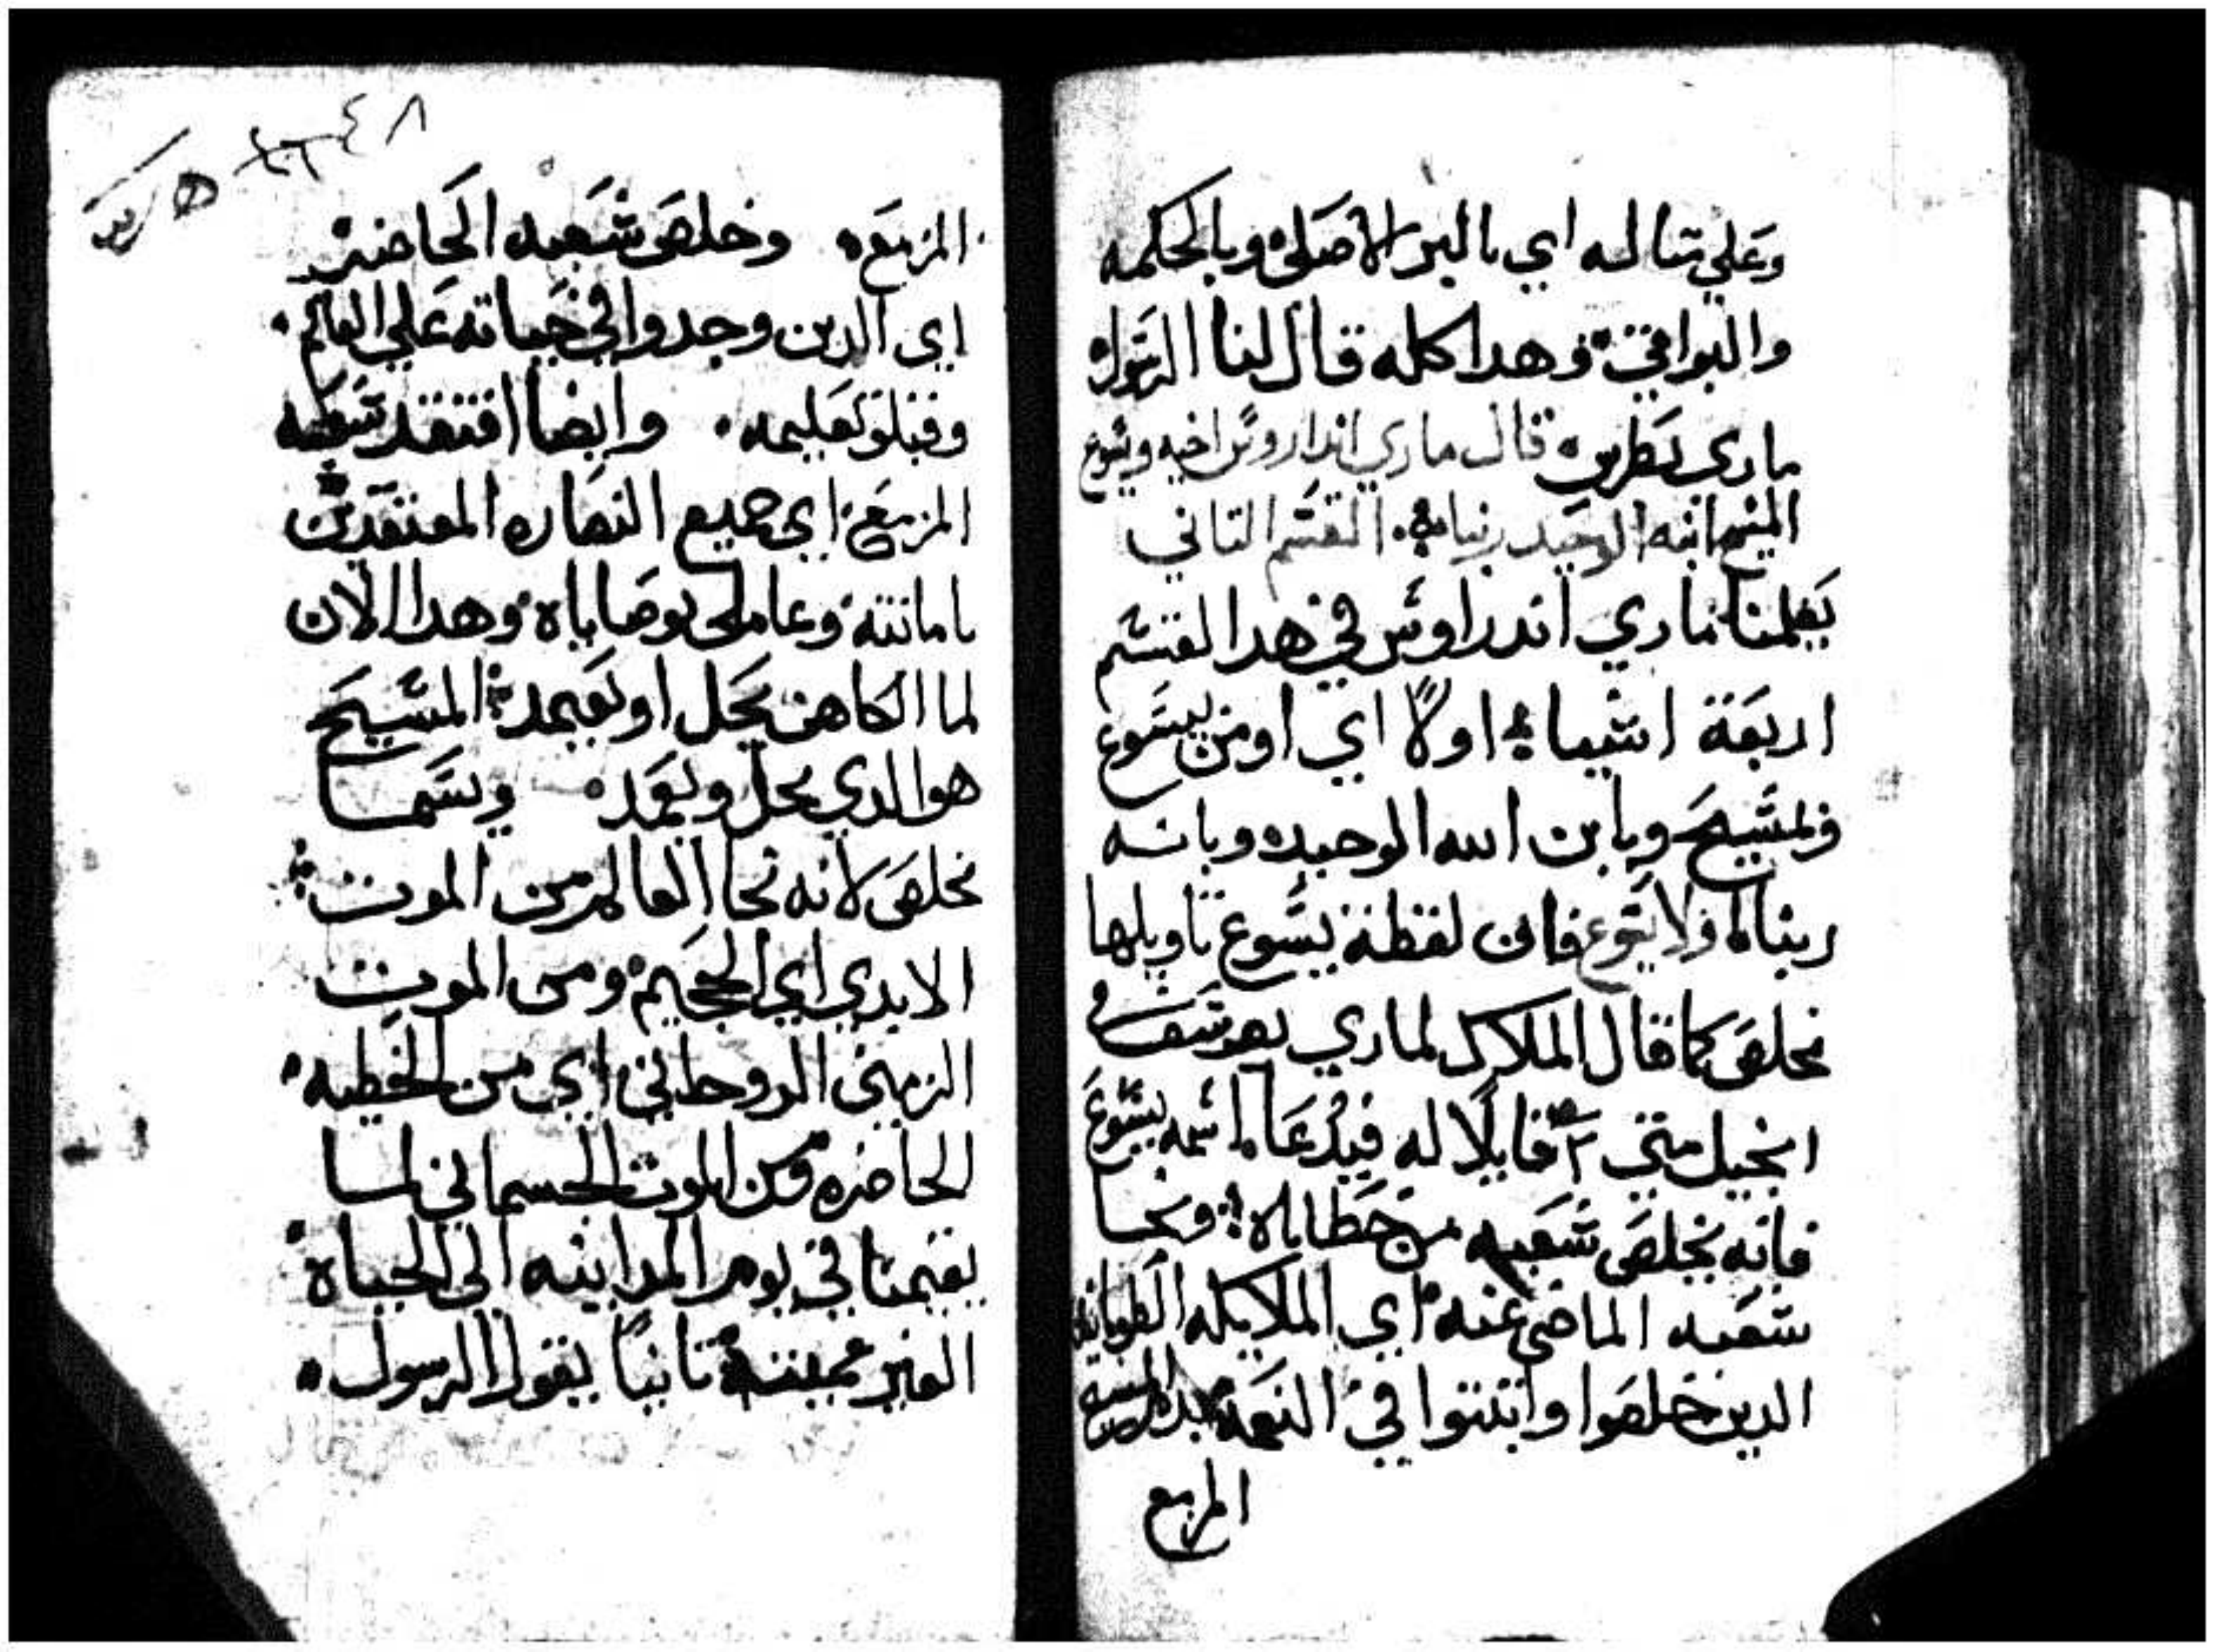 وعلي تتاله اي بالبر الاصلي وبالحكمه
والبواقي وهدا كله قال لنا الرسول
ماري بطرس قال ماري اندراوس اخيه ويسوع
المسيح ابنه الوحيد ربنا القسم التاني
يعلمنا ماري اندراوس في هدا القسم
اربعة اشياء اولا اي اومن بيسوع
ولمسيح وبابن الله الوحيد وبانه
ربنا فان لفظة يسوع تاويلها
مخلص كما قال الملاك لماري يوسف
انجيل متي قايلا له فيدعا اسمه يسوع
فانه يخلص شعبه من خطاياه ونجا
شعبه الماضي عنه اي الملايكه الطوبانيه
الدين خلصوا واتبتوا في النعمة
المزمع
المزمع وخلص شعبه الحاضر
اي الدين وجدوا في حياته علي العالم
وقبلو تعليمه وايضا افتقد شعبه
المزمع اي جميع النصاره المعتقدين
بامانته وعاملي بوصاياه وهدا الان
لما الكاهن يحل او يعمد المسيح
هو الدي يحل ويعمد ويسما
مخلص لانه نجا العالم من الموت
الابدي اي الجحيم ومن الموت
الزمني الروحاني اي من الخطيه
الحاضره ومن الموت الجسماني لما
يقيمنا في يوم المداينه الي الحياة
الغير مميتة تانيا يقول الرسول